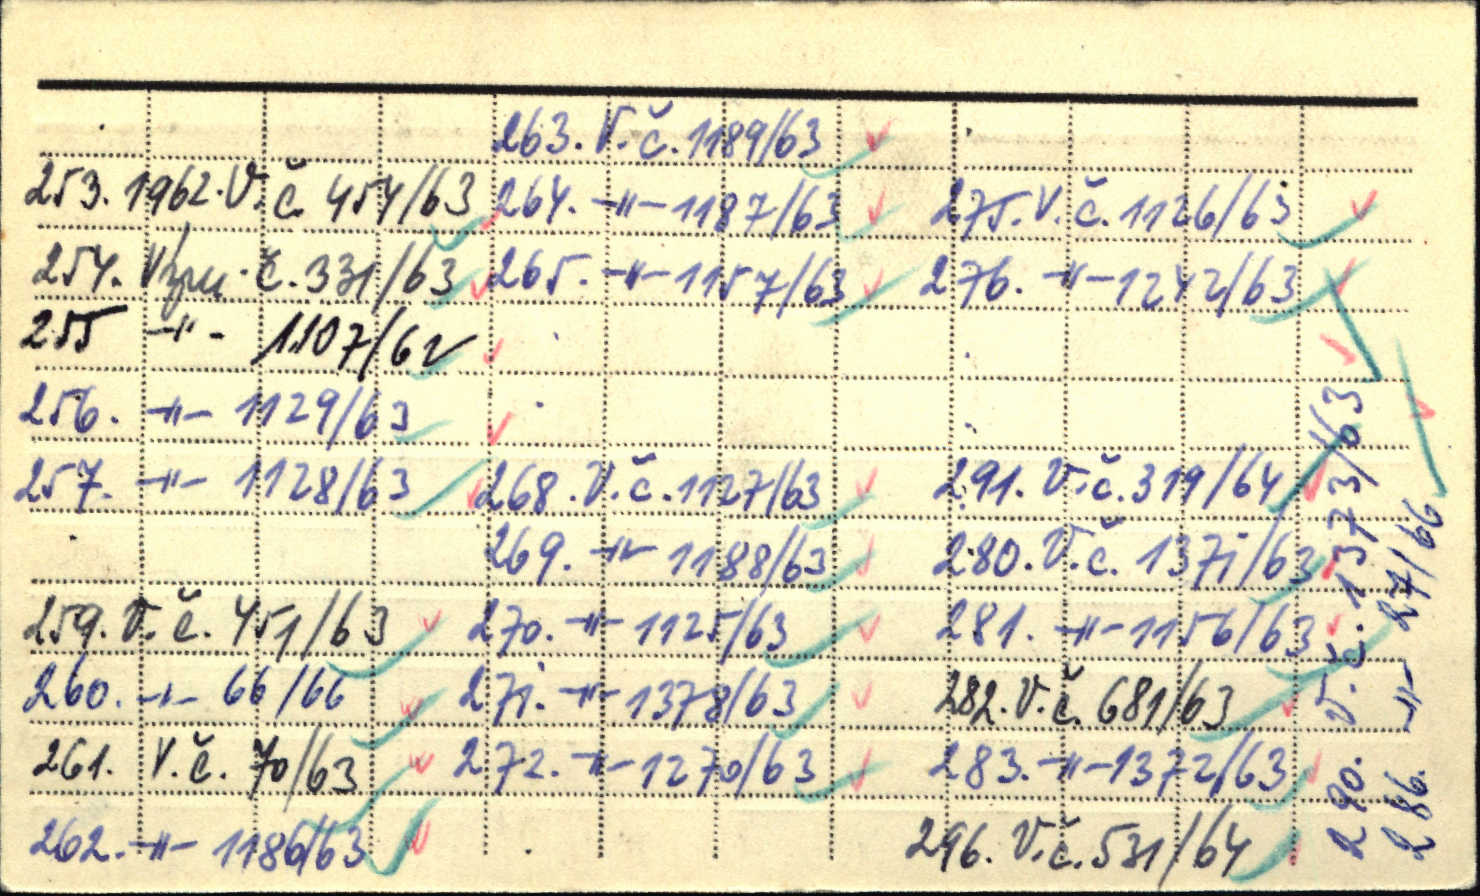 253. 1962. V. č. 454/63
254. Význ. č. 331/63
255 -"- 1107/62
256. -"- 1129/63
257. -"- 1128/63
259. V. č. 451/63
260. -"- 66/66
261. V. č. 70/63
262. -"- 1186/63
263. V. č. 1189/63
264. -"- 1187/63
265. -"- 1157/63
268. V. č. 1127/63
269. -"- 1188/63
270. -"- 1125/63
271. -"- 1378/63
272. -"- 1270/63
275. V. č. 1126/63
276. -"- 1242/63
291. V. č. 319/64
280. V. č. 1371/63
281. -"- 1156/63
282. V. č. 681/63
283. -"- 1372/63
296. V. č. 531/64
290. V. č. 1373/63
286. -"- 27/66